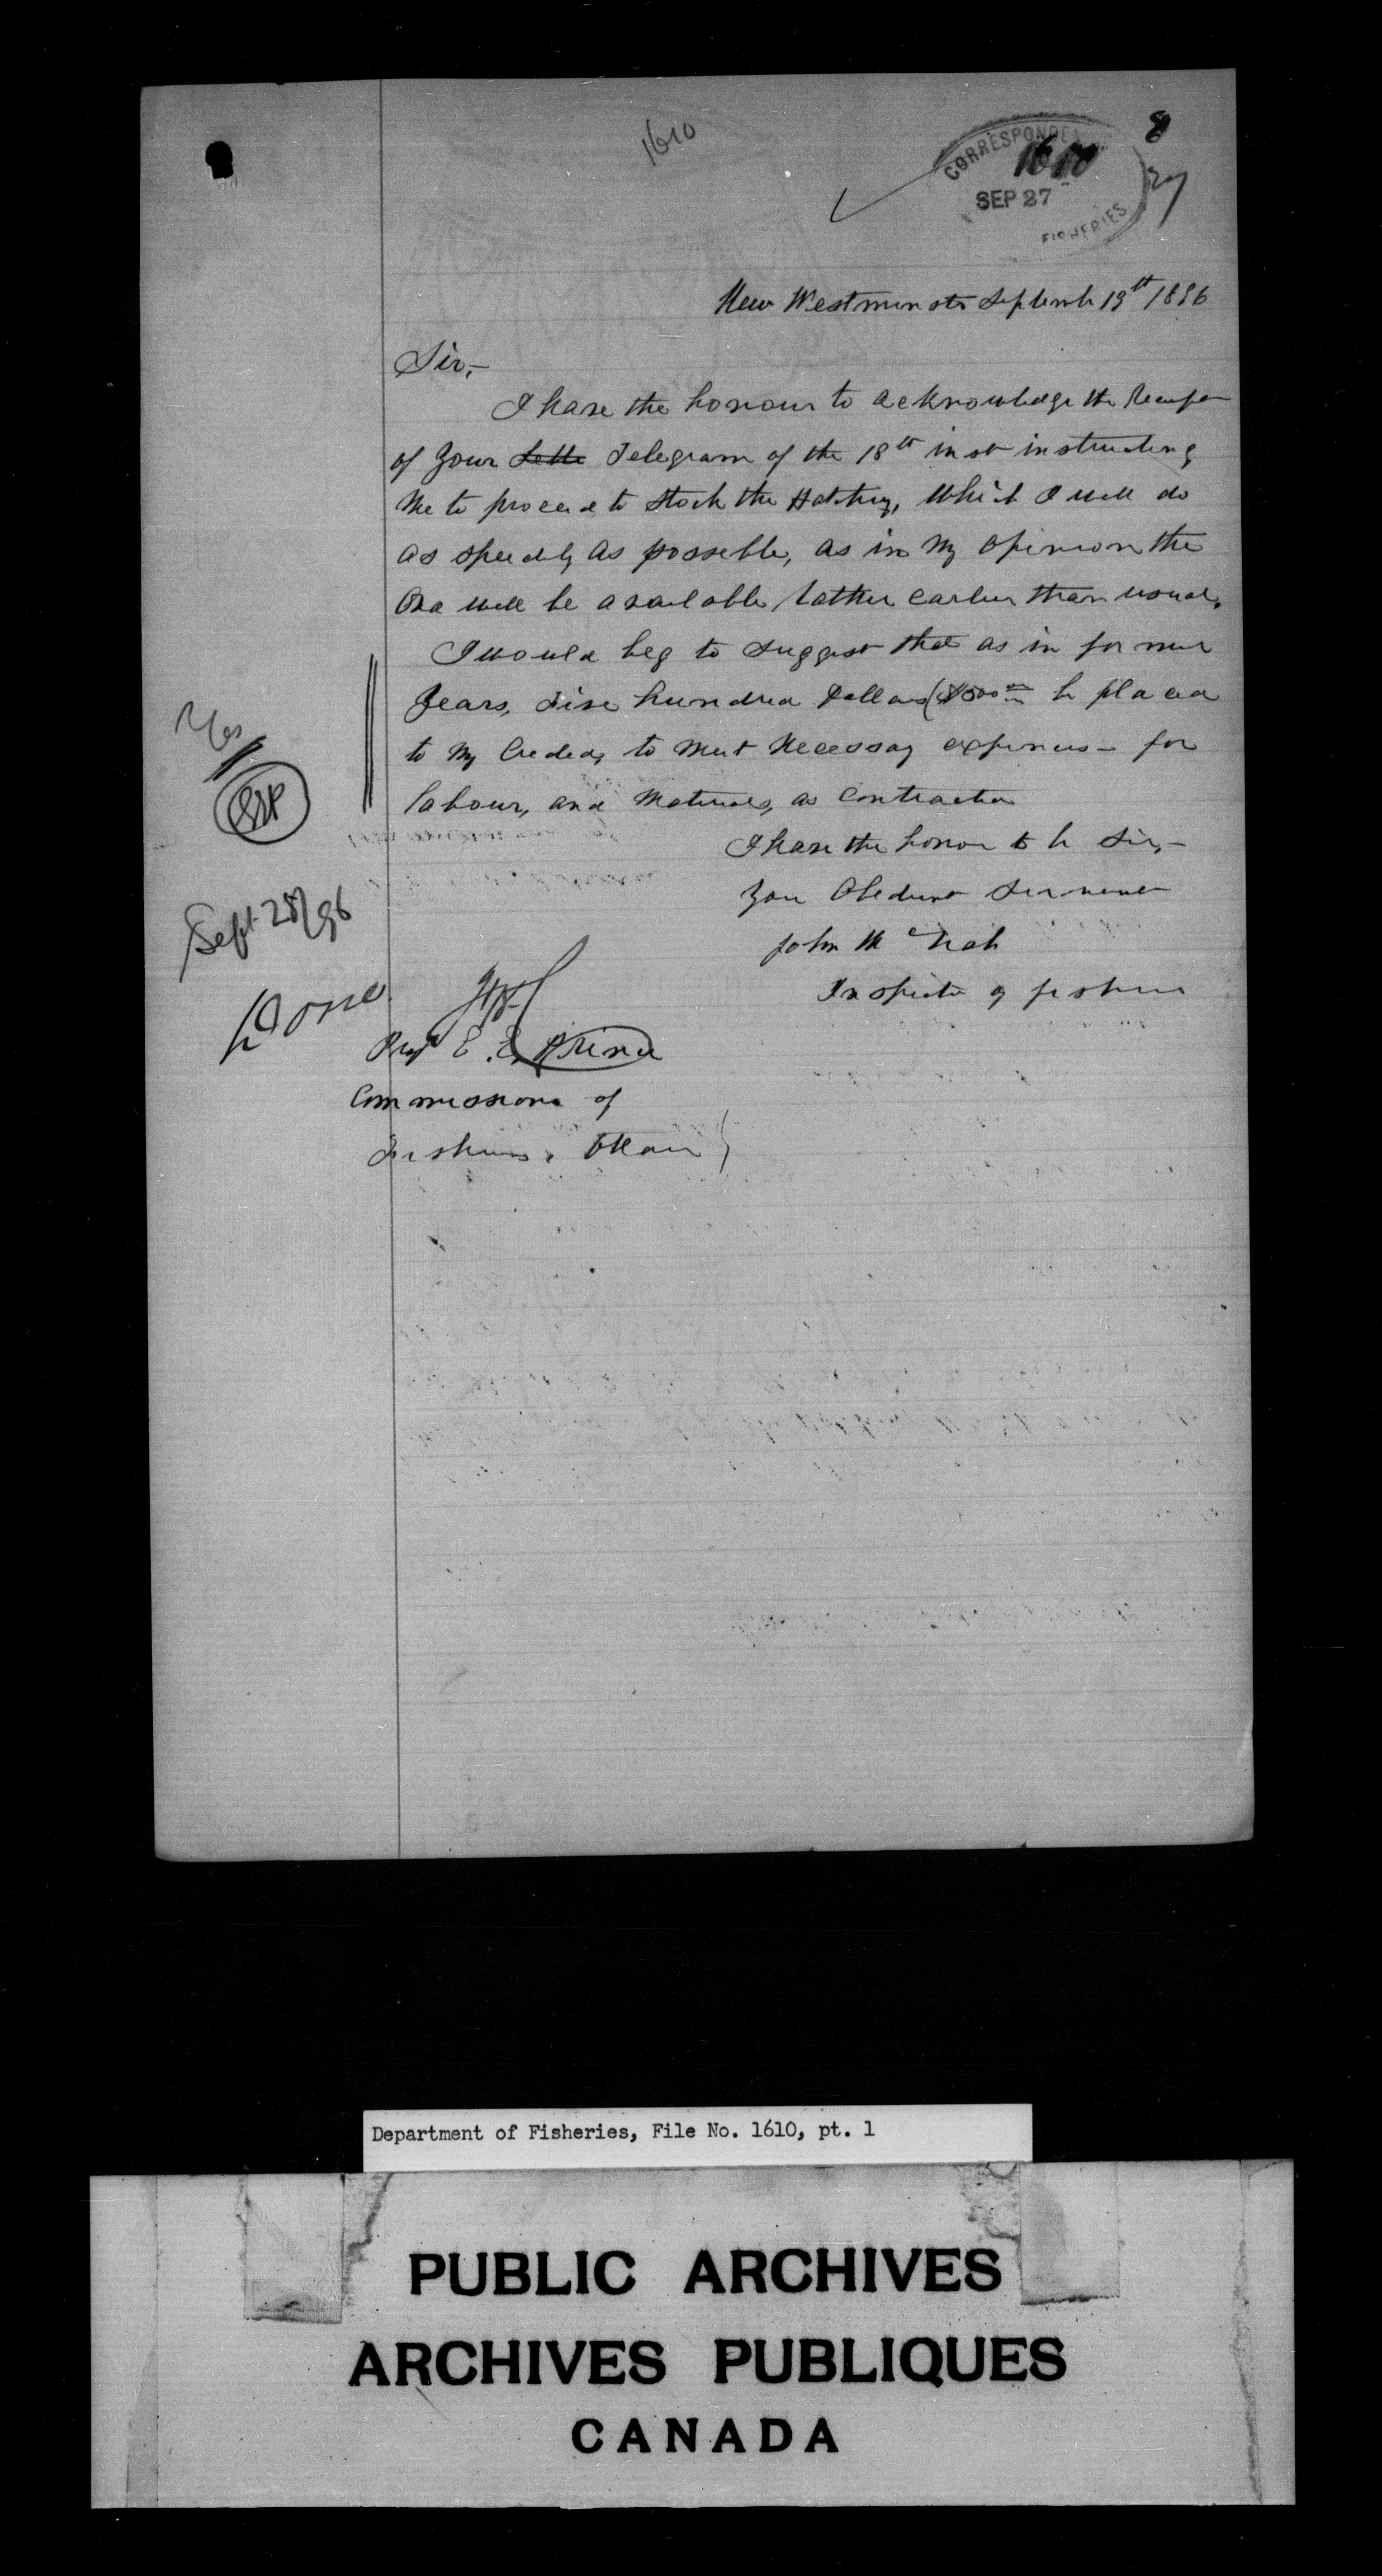 1610
CORRESPONDEN
1610
SEP 27
FISHERIES
8
27
New Westminster September 19th 1896
Sir,-
I have the honour to acknowledge the Receipt
of your Lette Telegram of the 18th inst instructing
me to proceed to stock the Hatchery, which I will do
as speedily as possible, as in my opinion the
Ova will be available rather earlier than usual.
I would beg to suggest that as in former
years, five hundred Dollars ($500.00 be placed
to my Credit, to meet Necessary expenses - for
labour, and Materials, as Contracted
I have the honor to be Sir,-
Your Obedient Servant
John McNab
Inspector of fisheries
Yes
EEP
Sept 28/96
Done
Prof E. E. Prince
Commissioner of
Fisheries, Ottawa
Department of Fisheries, File No. 1610, pt. 1
PUBLIC ARCHIVES
ARCHIVES PUBLIQUES
CANADA